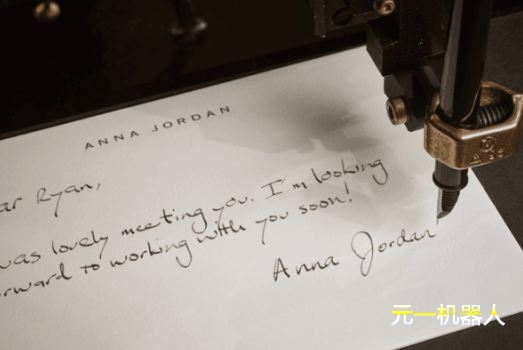 ANNA JORDAN
ar Ryan,
was lovely meeting you. I'm looking
rward to working with you soon!
Anna Jordan
元一机器人